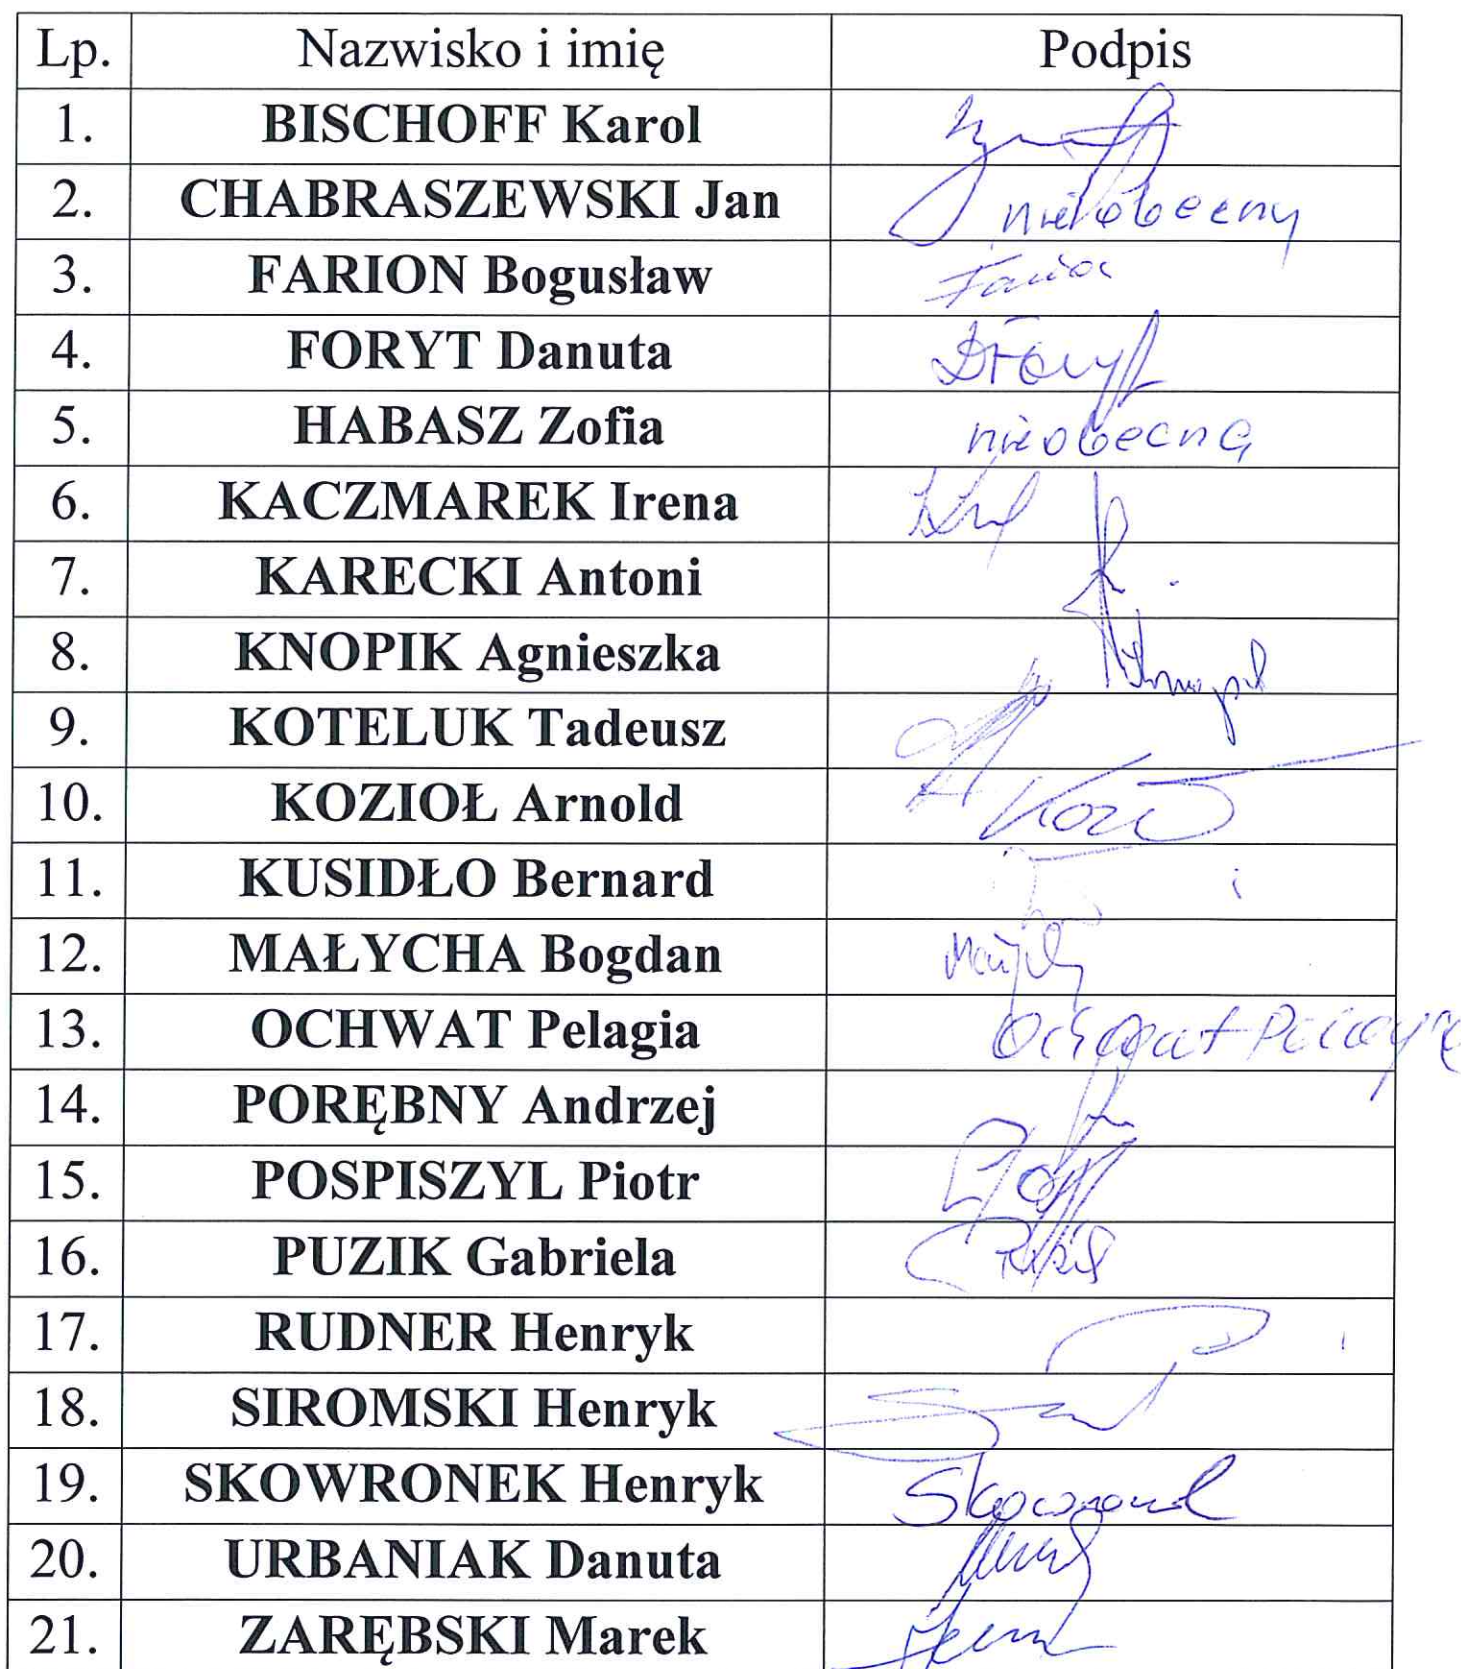 Lp. Nazwisko i imię Podpis
1. BISCHOFF Karol
2. CHABRASZEWSKI Jan nieobecny
3. FARION Bogusław
4. FORYT Danuta DForyt
5. HABASZ Zofia nieobecna
6. KACZMAREK Irena
7. KARECKI Antoni
8. KNOPIK Agnieszka
9. KOTELUK Tadeusz
10. KOZIOŁ Arnold
11. KUSIDŁO Bernard
12. MAŁYCHA Bogdan
13. OCHWAT Pelagia Ochwat Pelagia
14. PORĘBNY Andrzej
15. POSPISZYL Piotr
16. PUZIK Gabriela
17. RUDNER Henryk
18. SIROMSKI Henryk
19. SKOWRONEK Henryk Skowronek
20. URBANIAK Danuta
21. ZARĘBSKI Marek